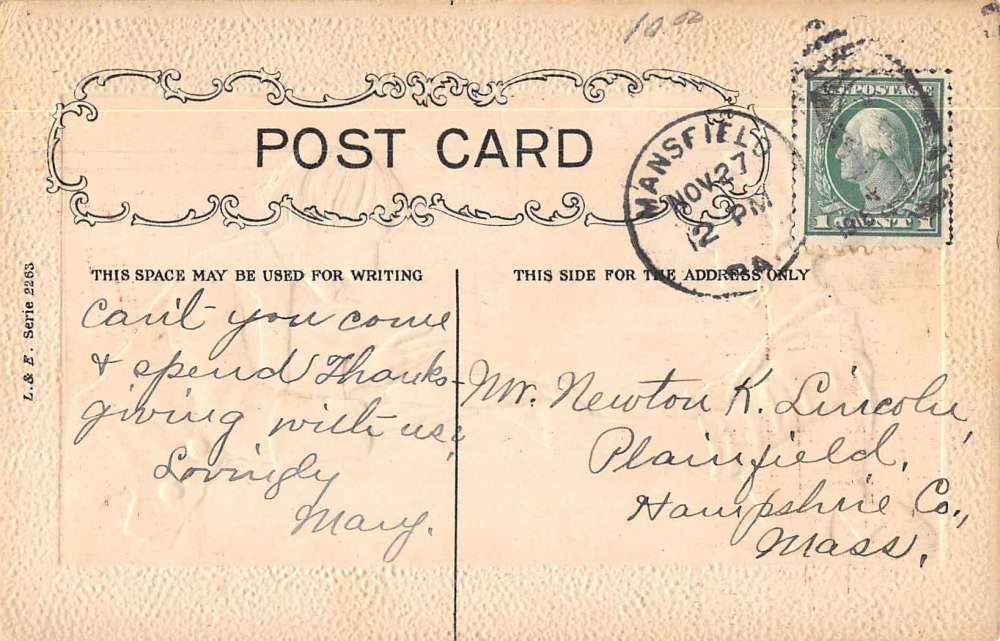 10.00
POST CARD
MANSFIELD
NOV 27
12 PM
PA.
U.S. POSTAGE
1 CENT 1
THIS SPACE MAY BE USED FOR WRITING
THIS SIDE FOR THE ADDRESS ONLY
L. & E. Serie 2263
Can't you come
& spend Thanks-
giving with us?
Lovingly
Mary.
Mr. Newton K. Lincoln,
Plainfield,
Hampshire Co.,
Mass.